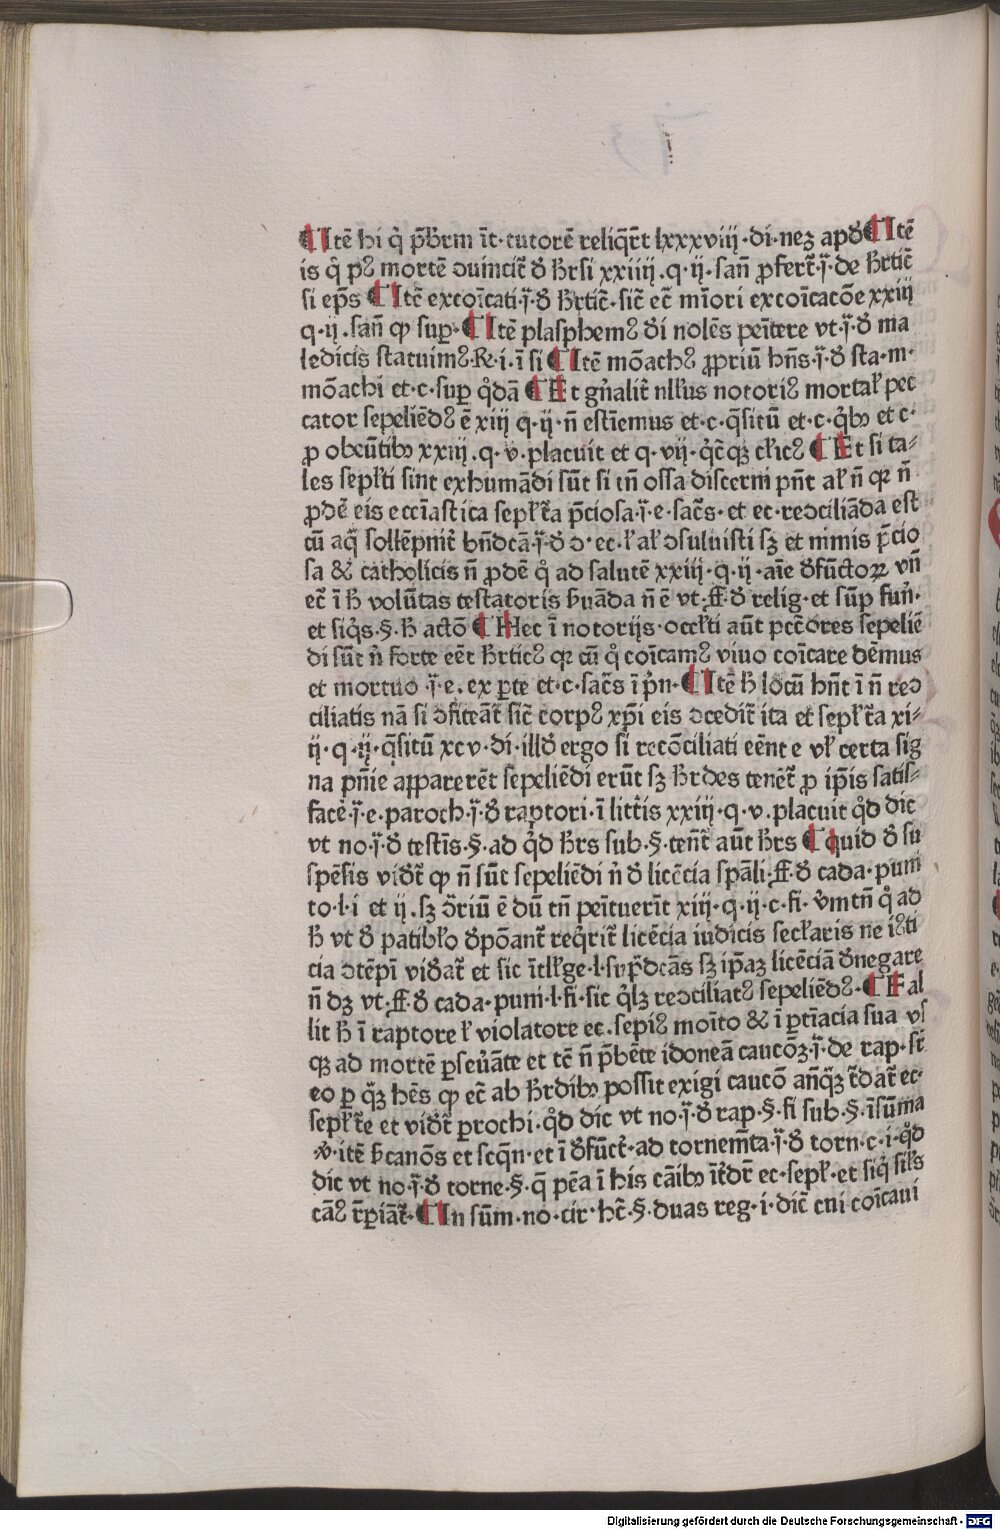 ¶ Itē hi q̇ p̄bꝛ̄m īt· tutorē reliq̄rt̄ lxxxviij·di·neꝫ apď ¶ Itē
is q̇ pꝰ mortē ↄuincit̄ ď hꝛ̄si xxiiij·q·ij·san̄ ꝓfert̄·j̈·de hꝛ̄tic̄
si ep̄s ¶ Itē excoīcati·j̈·ď hꝛ̄tic̄·sic̄ ec̄ mīori excoīcacōe xxiij
q·ij·san̄ ꝙ suꝑ· ¶ Itē plasphemꝰ ďi nolēs peītere vt·j̈·ď ma
ledicis statuimꝰ·℞·i·ī si ¶ Itē mōachꝰ ꝓpriū hn̄s·j̈·ď sta·m·
mōachi et·c·suꝑ q̊dā ¶ Et gn̄alit̄ nłłus notoriꝰ mortał pec
cator sepeliēdꝰ ē xiij q·ij·n̄ estīemus et·c·q̄situ et·c·q̇bꝫ et c·
ꝓ obeūtibꝫ xxiij·q·v·placuit et q·vij·q̇c̄qꝫ cłicꝰ ¶ Et si ta⸗
les sepłti sint exhumādi sūt si in̄ ossa discerni pn̄t ał n̄ qꝛ n̄
ꝓdē eis eccīastica sepłt̄a p̄ciosa·j̈·e·sac̄s·et ec·reↄciliāda est
cū aq̄ sollēpnit̄ bn̄dcā·j̈·ď ↄ·ec·ł ał ↄsuluisti sꝫ et nimis p̄cio
sa & catholicis n̄ ꝓdē q̊ ad salutē xxiij·q·ij·aīe ďfūctoꝝ vn̄
ec̄ ī ħ volūtas testatoris ẜuāda n̄ ē vt·ff·ď relig·et sūp fun̄·
et siq̇s·§·ħ actō ¶ Hec ī notorijs·occłti aūt pcc̄ores sepeliē
di sūt n̄ forte eēt hꝛ̄ticꝰ qꝛ cū q̊ coīcamꝰ viuo coīcare dēmus
et mortuo·j̈·e·ex ꝑte et·c·sac̄s ī pn̄· ¶ Itē ħ locū hn̄t ī n̄ reↄ
ciliatis nā si ↄfiteāt̄ sic̄ corpꝰ xp̄i eis ↄcedit̄ ita et sepłt̄a xi⸗
ij·q·ij·q̄situ xcv·di·illď ergo si recōciliati eēnt e vł certa sig
na pn̄ie apparerēt sepeliēdi erūt sꝫ hꝛ̄des tenēt̄ ꝓ ip̄is satis⸗
facē·j̈·e·paroch·j̈·ď raptori·ī litt̄is xxiij·q·v·placuit q̊d dic
vt no·j̈·ď testīs·§·ad q̊d hꝛ̄s sub·§·ten̄t̄ aūt hꝛ̄s ¶ quid ď su
spēsis viďt̄ ꝙ n̄ sūt sepeliēdi n̄ ď licēcia spāli·ff·ď cada·puni
to·l·i et ij·sꝫ ↄ̄riū ē dū tn̄ peītuerīt xiij·q·ij·c·fi·v̄mtn̄ q̊ ad
ħ vt ď patibło ďpōant̄ req̇rit̄ licēcia iudicis secłaris ne iꝰti
cia ↄtēpī viďat̄ et sic ītłłge·l·sup̄dcās sꝫ ip̄aꝫ licēciā ďnegare
n̄ dꝫ vt·ff·ď cada·puni·l·fi·sic q̊lꝫ reↄciliatꝰ sepeliēdꝰ· ¶ Fal
lit ħ ī raptore ł violatore ec·sepiꝰ moīto & ī ꝑtīacia sua vs
qꝫ ad mortē ꝑseu̇āte et tē n̄ p̄bēte idoneā caucōꝫ·j̈·de rap·st̄
eo ꝑ q̄ꝫ hēs ꝙ ec̄ ab hꝛ̄dibꝫ possit exigi caucō an̄q̄ꝫ t̄dat̄ ec·
sepłt̄e et viďt̄ ꝑrochi·q̊d dic vt no·j̈·ď rap·§·fi sub·§·īsūma
℣·itē ẜcanōs et scq̄n·et ī ďfūct̄·ad tornem̄ta·j̈·ď torn·c·i·q̊d
dic vt no·j̈·ď torne·§·q̄ pēa ī his cāibꝫ īt̄dꝛ̄ ec·sepł·et siq̇ siłs
cāꝰ r̄ꝑiāt̄· ¶ In sūm·no·cir·hc̄·§·duas reg·i·dic̄ cui coīcaui
Digitalisierung gefördert durch die Deutsche Forschungsgemeinschaft · DFG